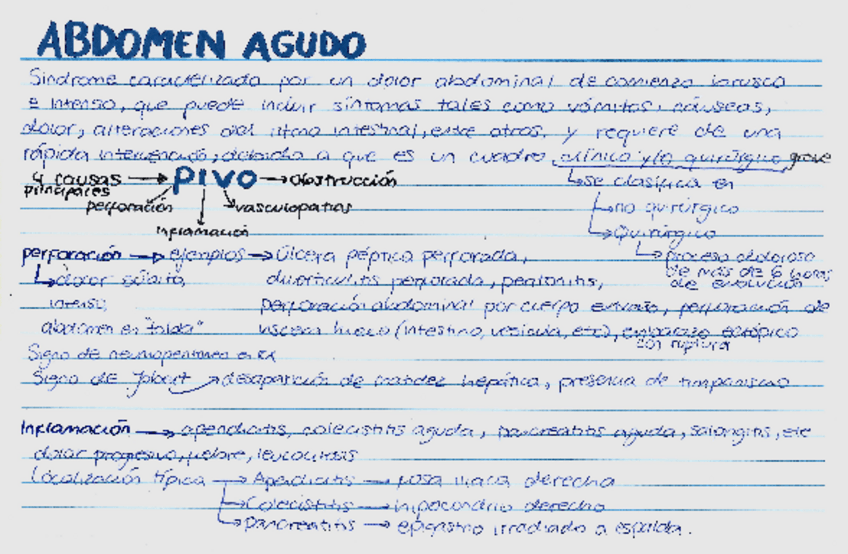 ABDOMEN AGUDO
Síndrome caracterizado por un dolor abdominal de comienzo brusco
e intenso, que puede incluir síntomas tales como vómitos, náuseas,
dolor, alteraciones del ritmo intestinal, entre otros, y requiere de una
rápida intervención, debido a que es un cuadro clínico y/o quirúrgico grave
4 causas principales → PIVO → obstrucción
perforación
vasculopatías
inflamación
se clasifica en
no quirúrgico
Quirúrgico
proceso doloroso
de más de 6 horas
de evolución
perforación → ejemplos → Úlcera péptica perforada,
dolor súbito, diverticulitis perforada, peritonitis,
intenso, perforación abdominal por cuerpo extraño, perforación de
abdomen en "tabla" víscera hueca (intestino, vesícula, etc), embarazo ectópico
con ruptura
Signo de neumoperitoneo en RX
Signo de Jobert → desaparición de matidez hepática, presencia de timpanismo
Inflamación → apendicitis, colecistitis aguda, pancreatitis aguda, salpingitis, etc
dolor progresivo, fiebre, leucocitosis
Localización típica → Apendicitis → fosa iliaca derecha
Colecistitis → hipocondrio derecho
Pancreatitis → epigastrio irradiado a espalda.